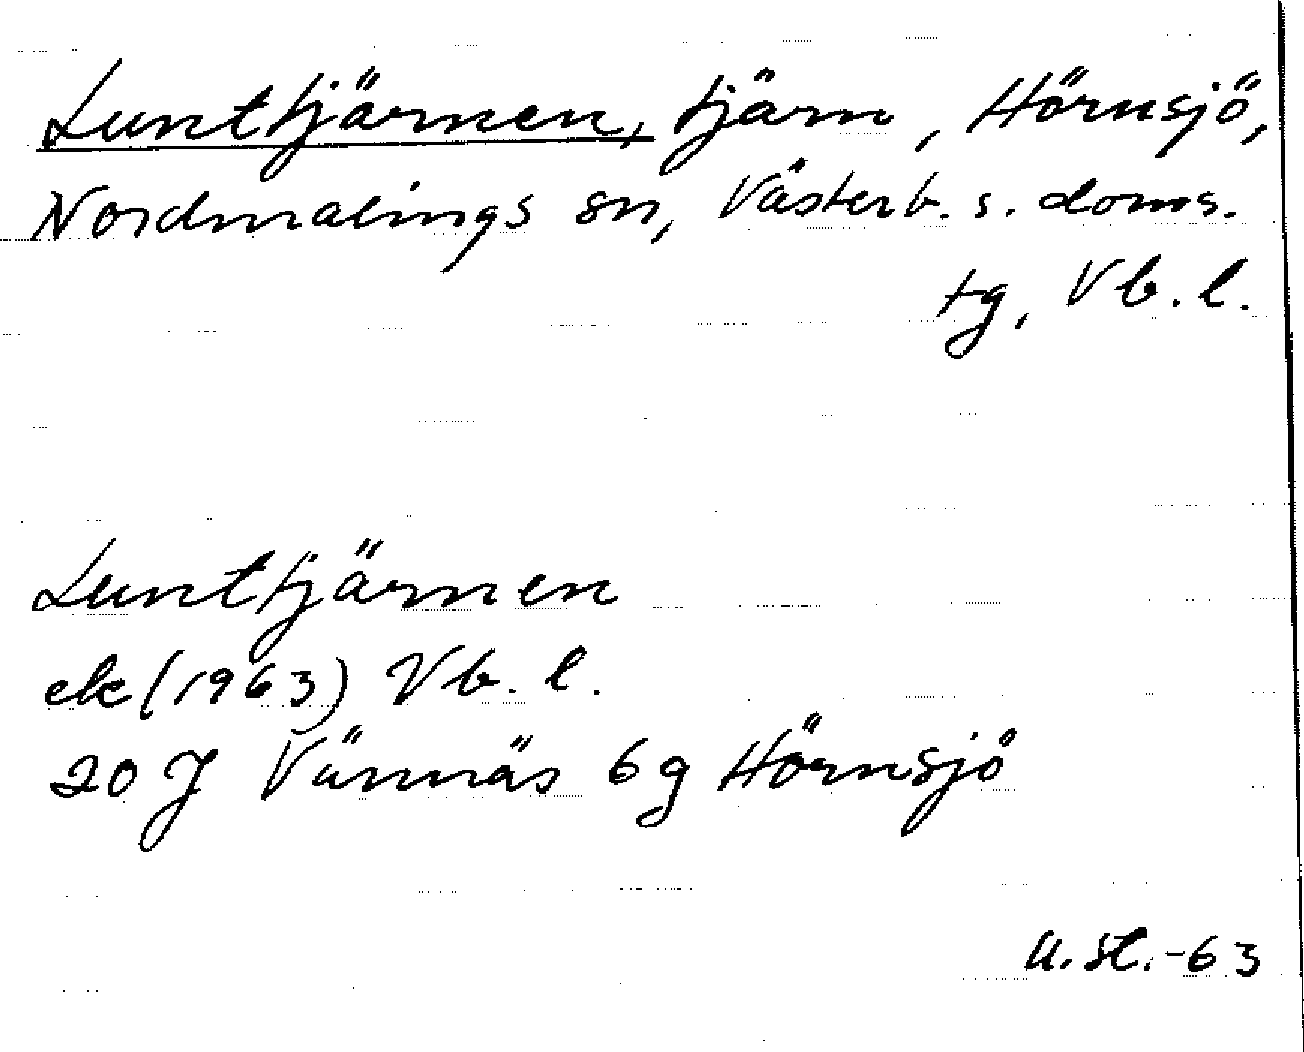 Lunttjärnen, tjärn, Hörnsjö,
Nordmalings sn, Västerb. s. doms.
tg, Vb. l.
Lunttjärnen
ek (1963) Vb. l.
20 J Vännäs 6 g Hörnsjö
U. St. -63